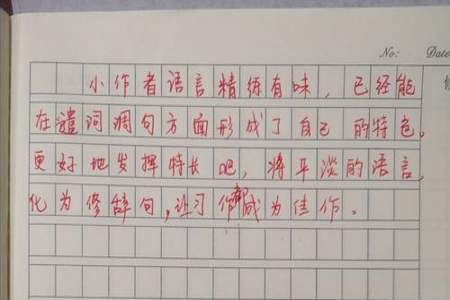 No:
Date
小作者语言精练有味，已经能
在遣词调句方面形成了自己的特色。
更好地发挥特长吧，将平淡的语言，
化为修辞句，让习作都成为佳作。